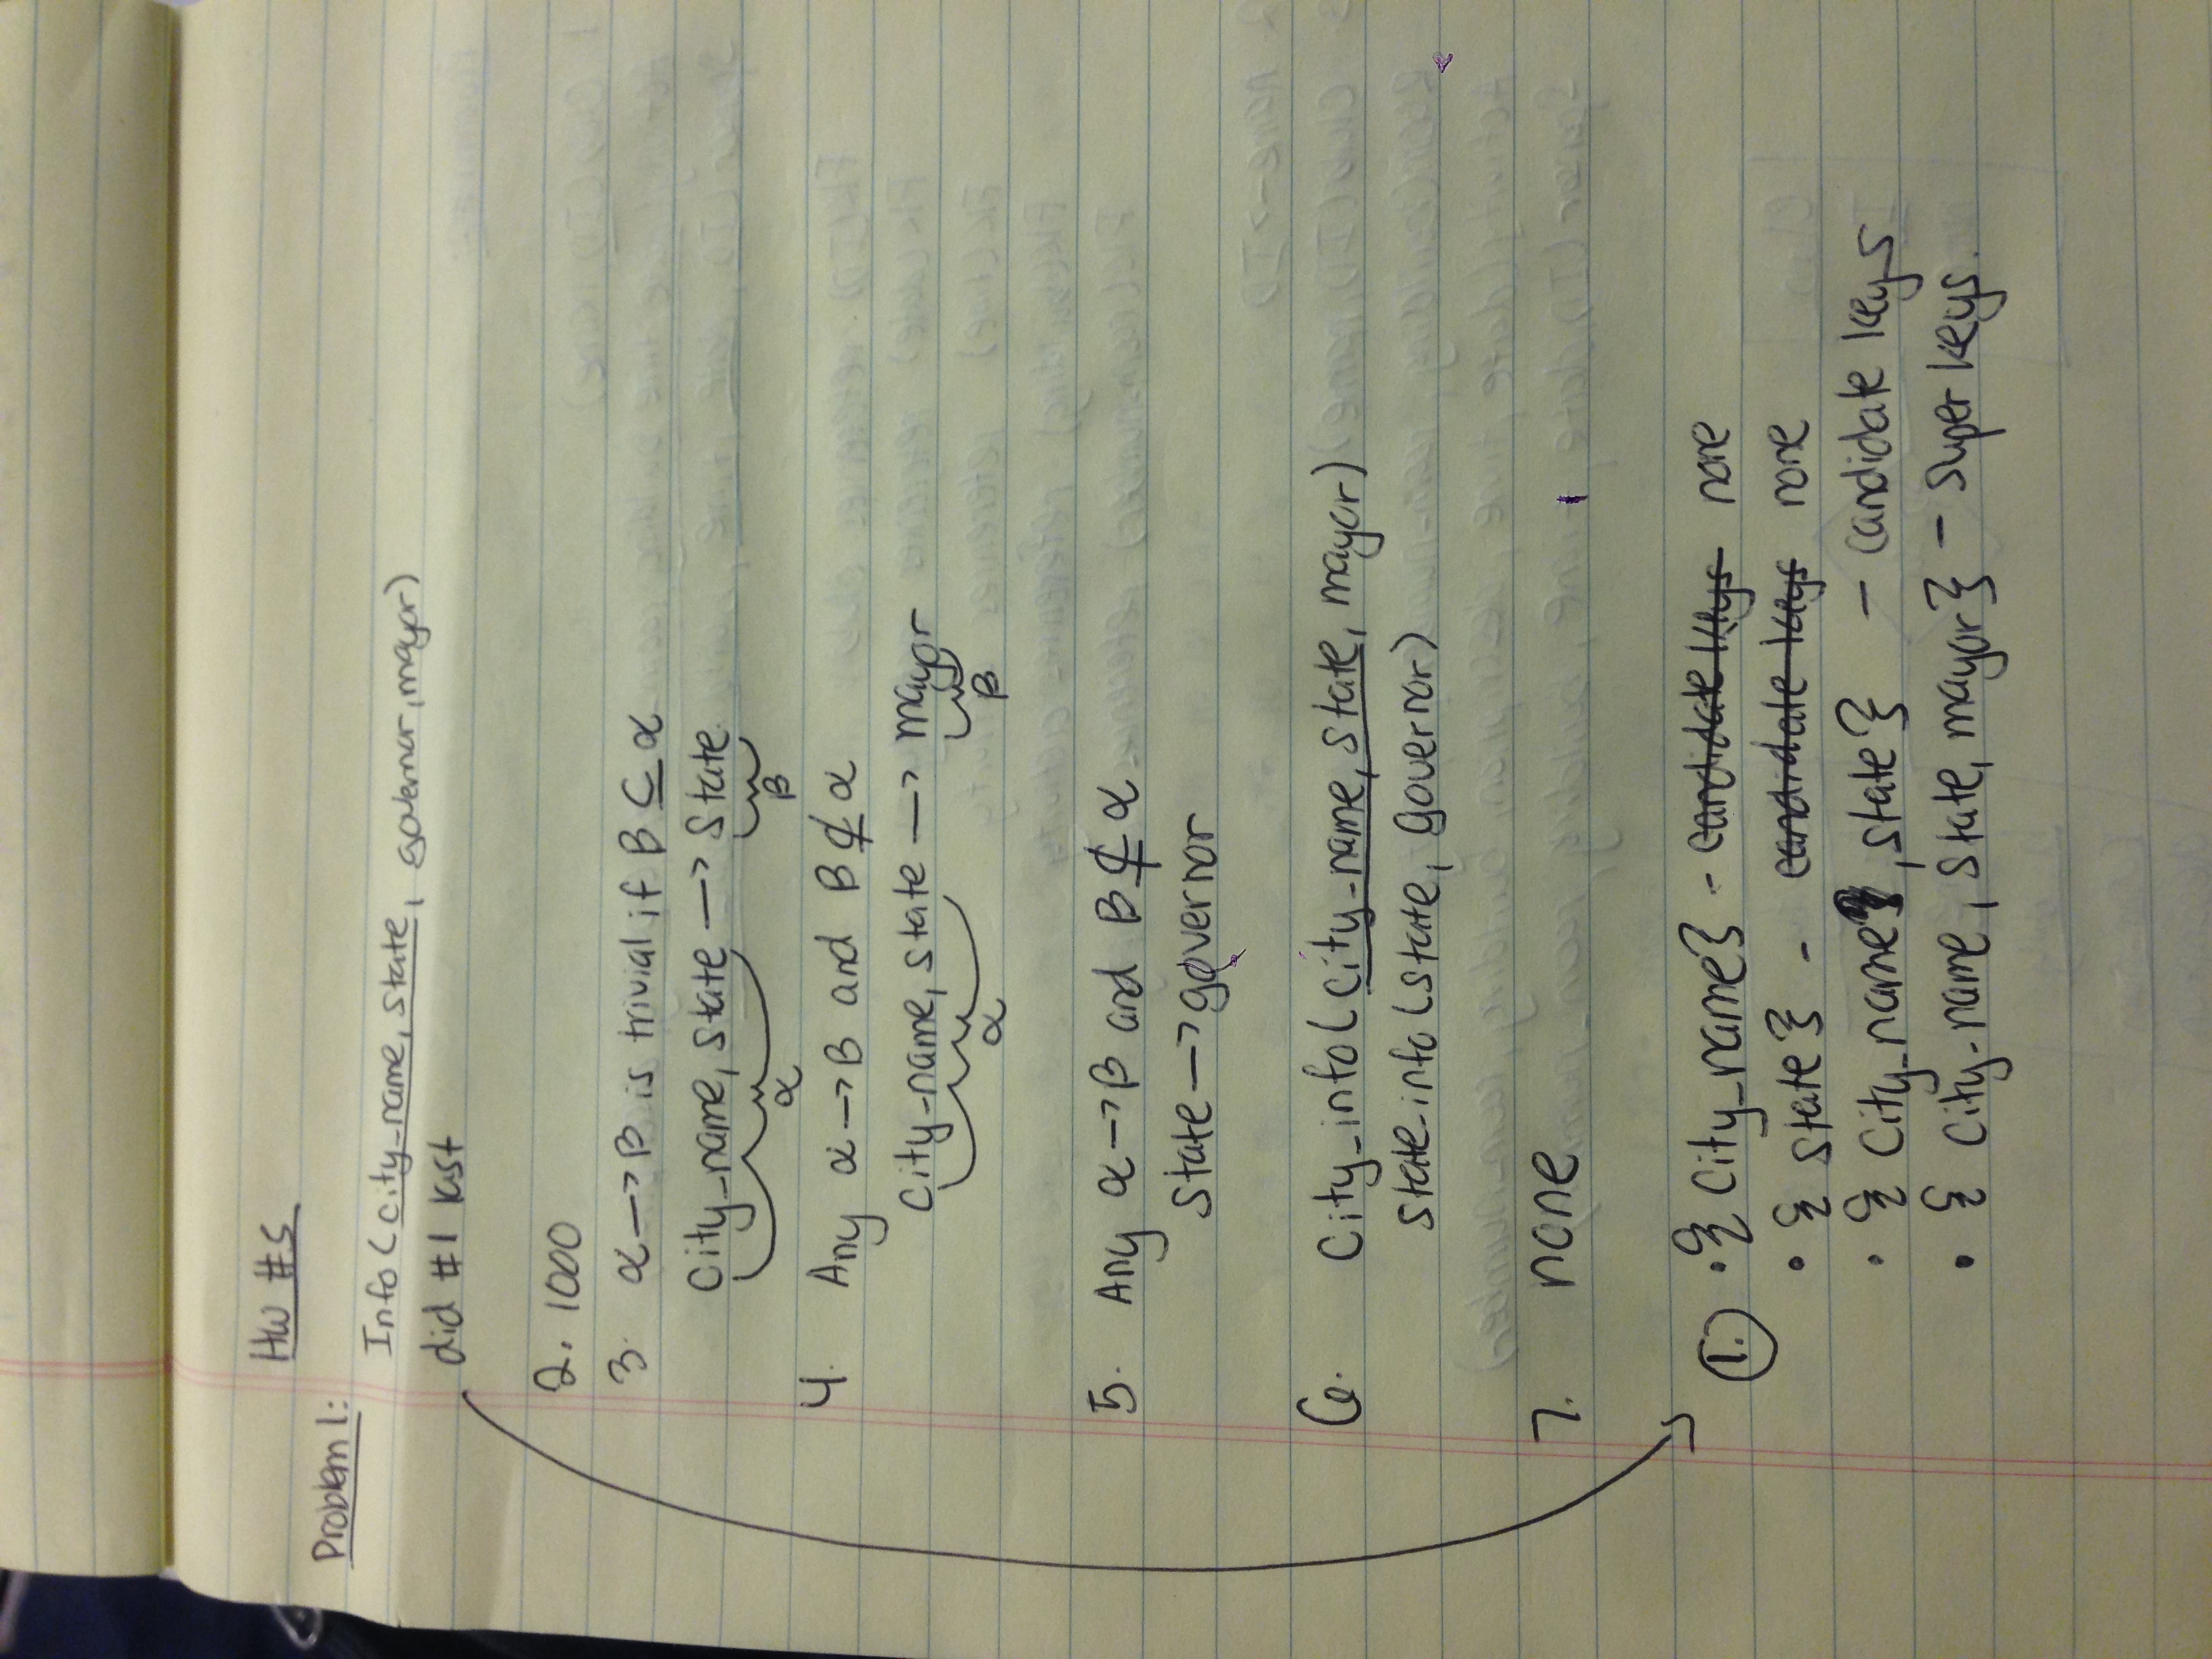 HW #5
Problem 1:
Info (city_name, state, governor, mayor)
did #1 last
2. 1000
3. α → β is trivial if β ⊆ α
city_name, state → state
α β
4. Any α → β and β ⊈ α
city_name, state → mayor
α β
5. Any α → β and β ⊈ α
state → governor
6. City_info (city_name, state, mayor)
state_info (state, governor)
7. none
1. • { city_name} - candidate keys none
• { state } - candidate keys none
• { city_name, state } - candidate keys
• { city_name, state, mayor } - super keys.